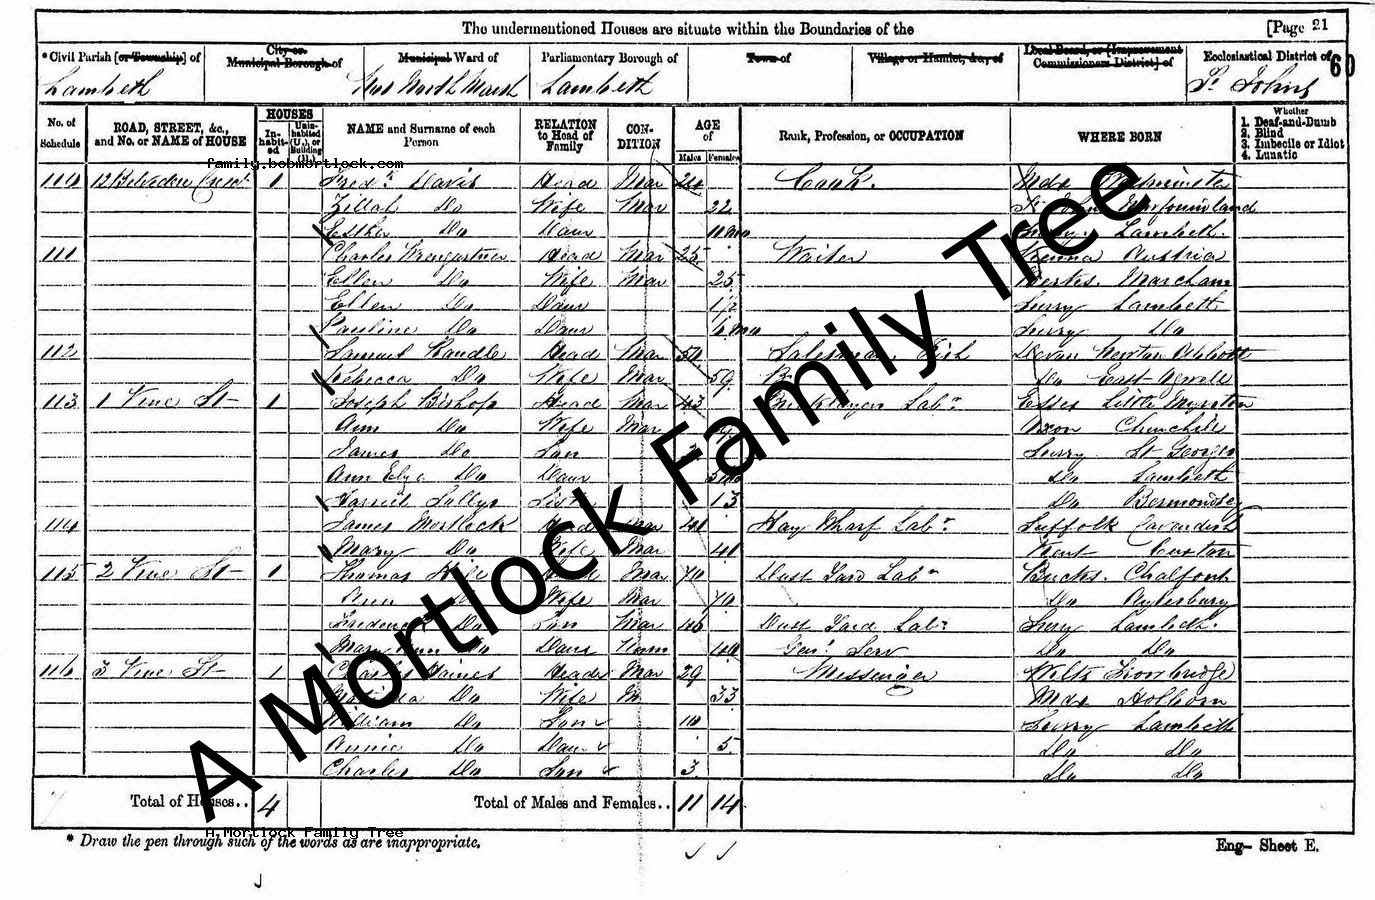 The undermentioned Houses are situate within the Boundaries of the [Page 21
* Civil Parish [or Township] of City or Municipal Borough of Municipal Ward of Parliamentary Borough of Town of Village or Hamlet, &c., of Local Board, or [Improvement Commissioners District] of Ecclesiastical District of 60
Lambeth North Marsh Lambeth St Johns
No. of Schedule ROAD, STREET, &c., and No. or NAME of HOUSE HOUSES Inhabited Uninhabited (U.), or Building (B.) NAME and Surname of each Person RELATION to Head of Family CONDITION AGE of Males Females Rank, Profession, or OCCUPATION WHERE BORN Whether
1. Deaf-and-Dumb
2. Blind
3. Imbecile or Idiot
4. Lunatic
family.bobmortlock.com
110 12 Belvedere Cresct 1 Fredk Davis Head Mar 24 Cook. Mdx Westminster
Zillah Do Wife Mar 22 St Johns Newfoundland
Esther Do Daur 11 mo Surry Lambeth
111 Charles Head Mar 25 Waiter Vienna Austria
Ellen Do Wife Mar 25 Berks. Marcham
Ellen Do Daur Surry Lambeth
Pauline Do Daur Surry Do
112 Samuel Randle Head Mar 54 Salesman Fish Devon Newton Abbott
Rebecca Do Wife Mar 59 Do East
113 1 Vine St 1 Joseph Bishop Head Mar 43 Bricklayers Labr Essex Little
Ann Do Wife Mar Oxon Churchill
James Do Son Surry St Georges
Ann Eliza Do Daur Do Lambeth
Harriet Sister 13 Do Bermondsey
114 James Mortlock Head Mar 41 Hay Wharf Labr Suffolk Cavendish
Mary Do Wife Mar 41 Kent Cuxton
115 2 Vine St 1 Thomas Head Mar 70 Dust Yard Labr Bucks. Chalfont
Ann Do Wife Mar 70 Do Aylesbury
Frederick Do Son Mar 46 Dust Yard Labr Surry Lambeth.
Mary Ann Do Daur Unm 40 Genl Serv Do Do
116 3 Vine St 1 Charles Haines Head Mar 29 Messenger Wilts Trowbridge
Matilda Do Wife M 33 Mdx Holborn
William Do Son 10 Surry Lambeth
Annie Do Daur 5 Do Do
Charles Do Son 3 Do Do
Total of Houses.. 4 Total of Males and Females.. 11 14
A Mortlock Family Tree
A Mortlock Family Tree
* Draw the pen through such of the words as are inappropriate. Eng— Sheet E.